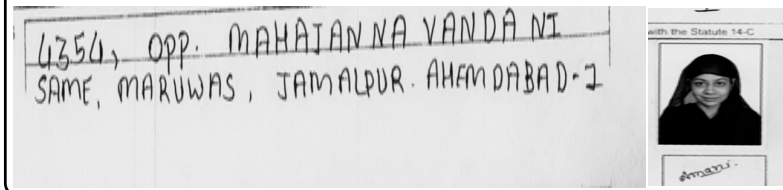 4354, OPP. MAHAJAN NA VANDA NI
SAME, MARUWAS, JAMALPUR. AHEMDABAD-1
with the Statute 14-C
Amani.